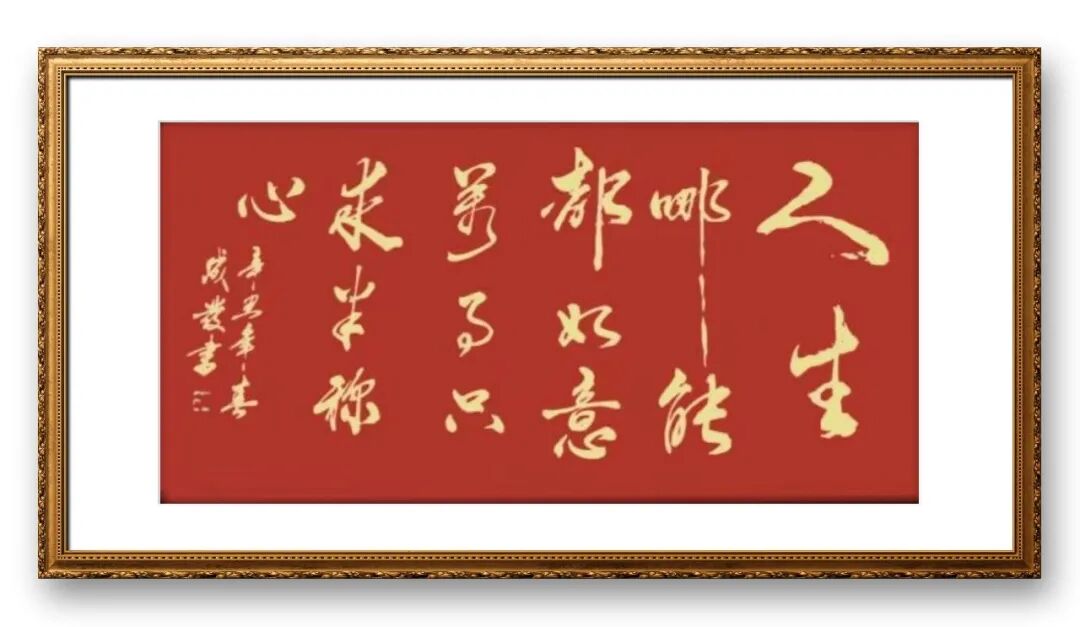 人生
哪能
都如意
万事只
求半称
心
辛丑年春
成发书